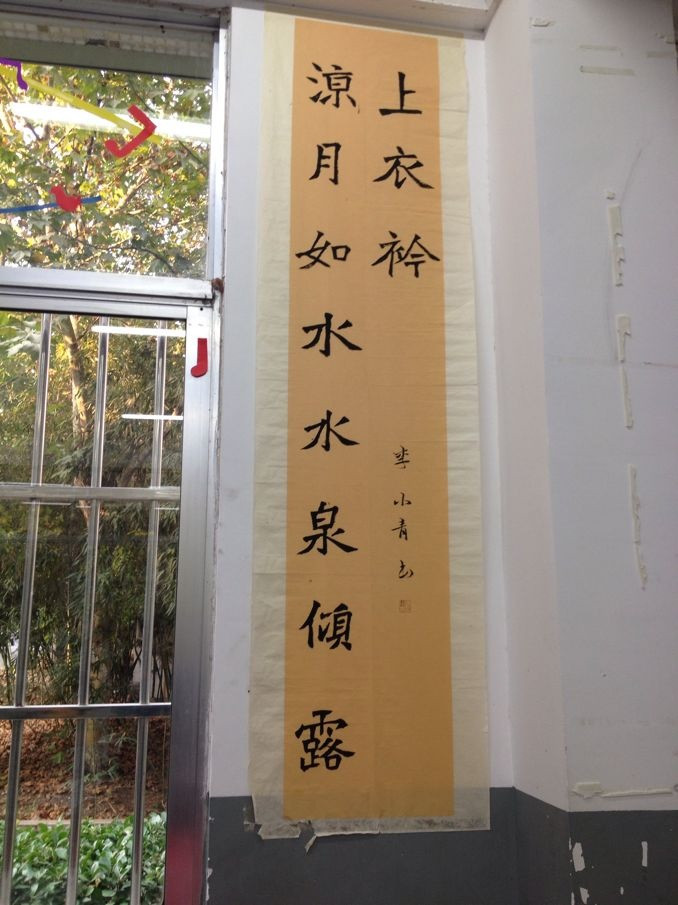 涼月如水水泉傾露
上衣衿
李小青书